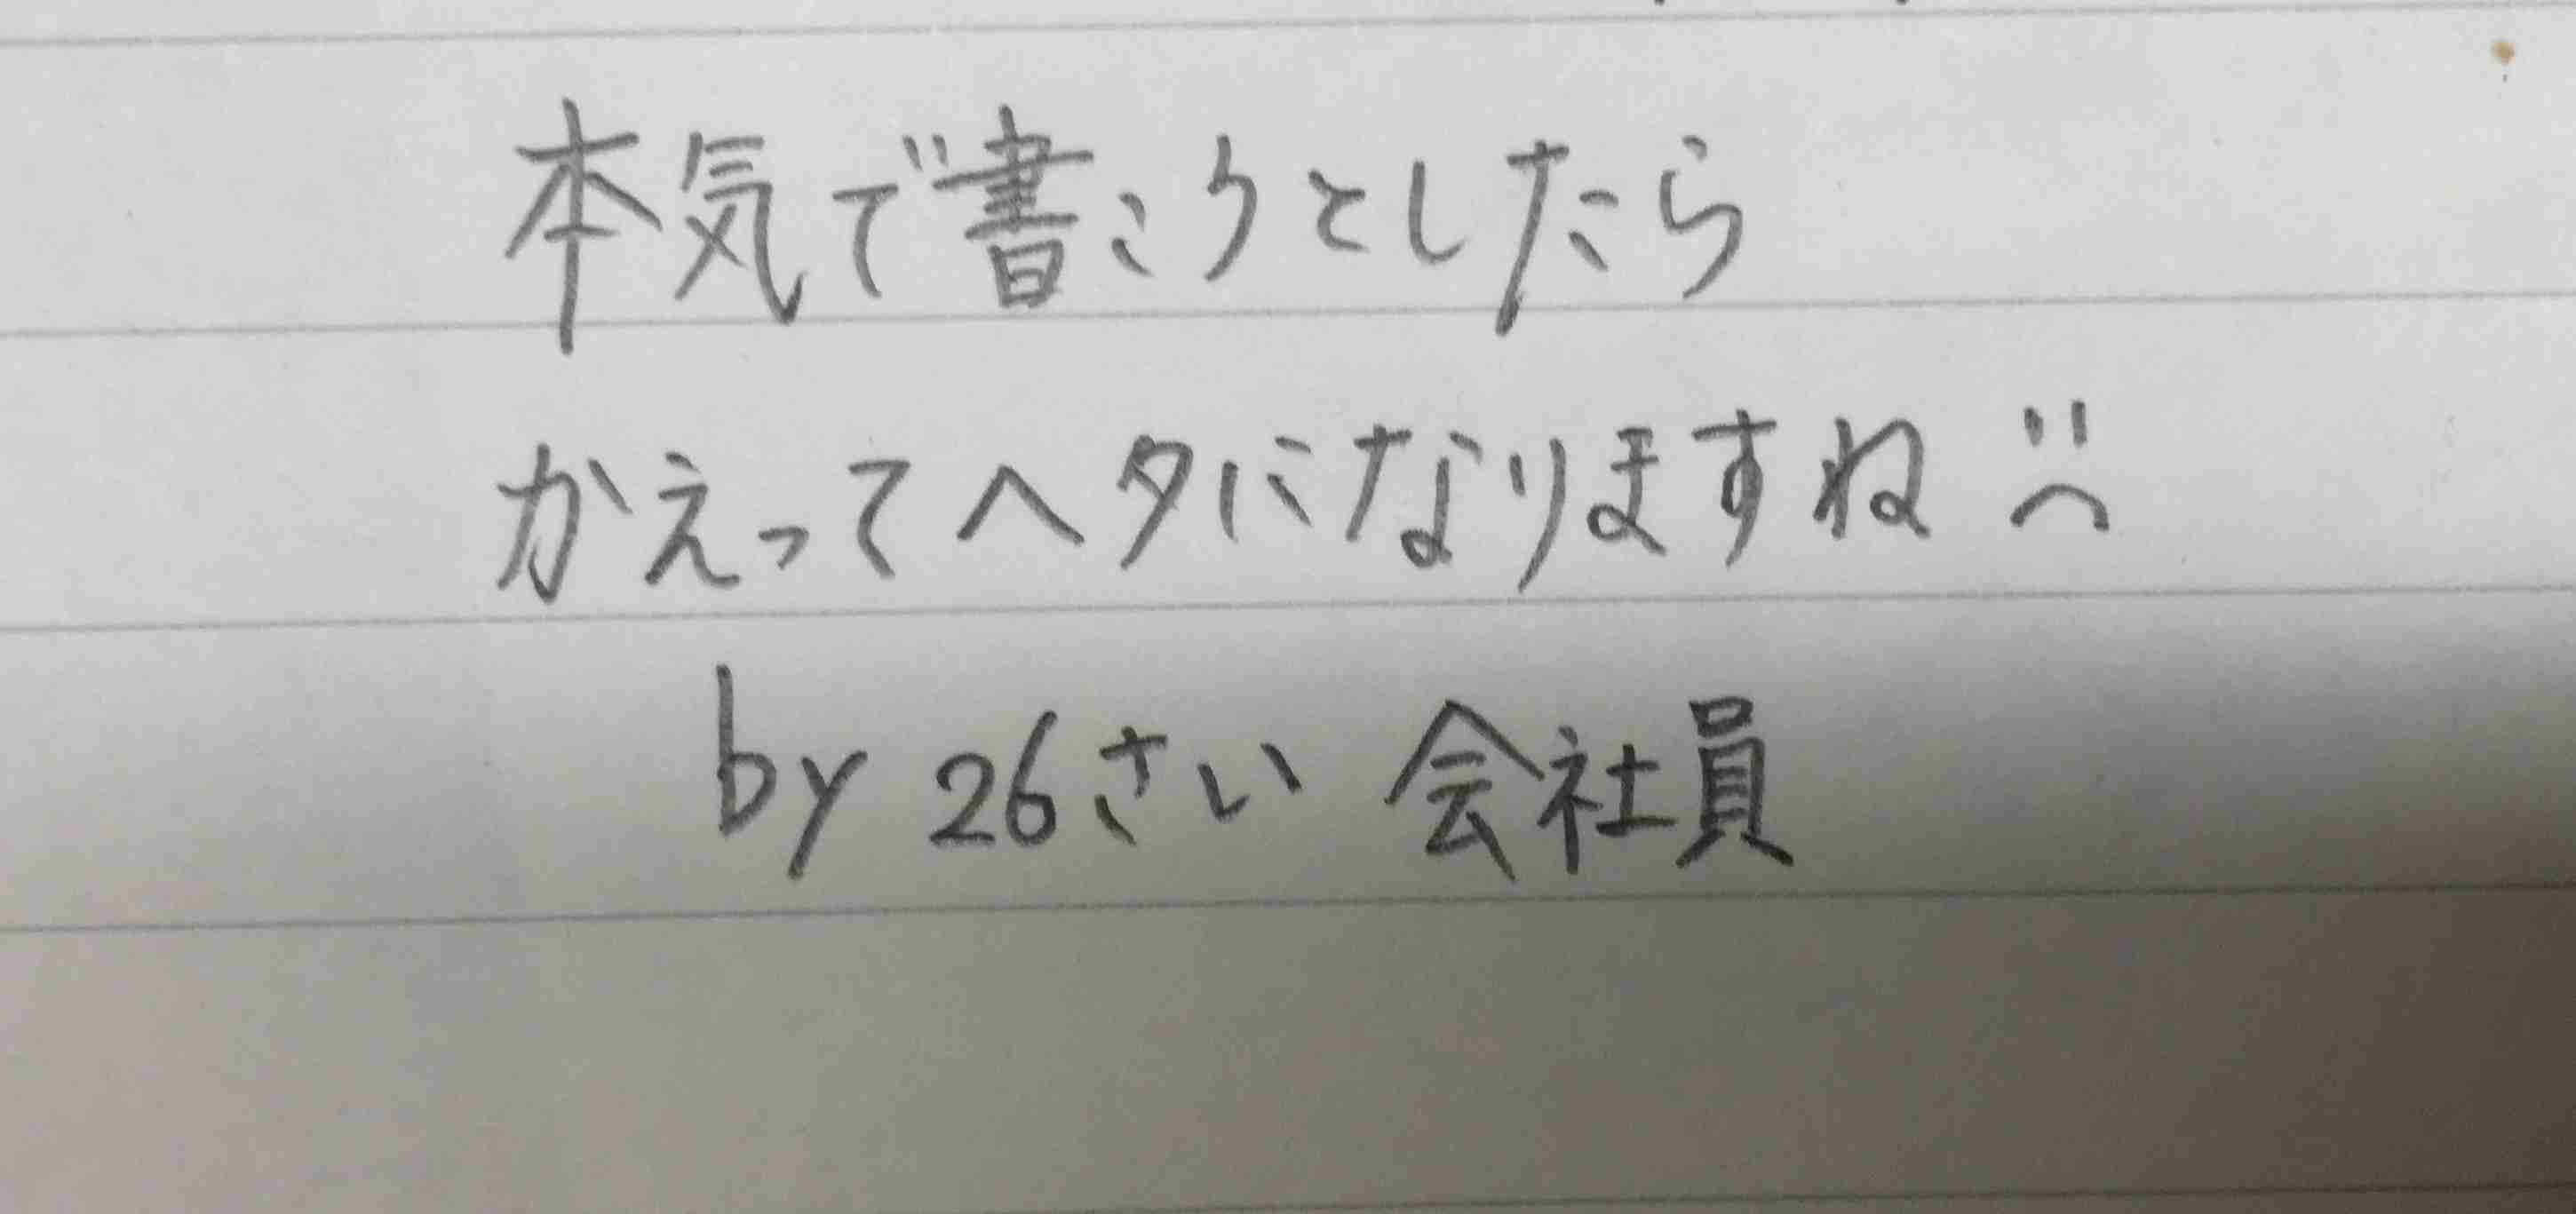 本気で書こうとしたら
かえってヘタになりますね
by 26さい 会社員